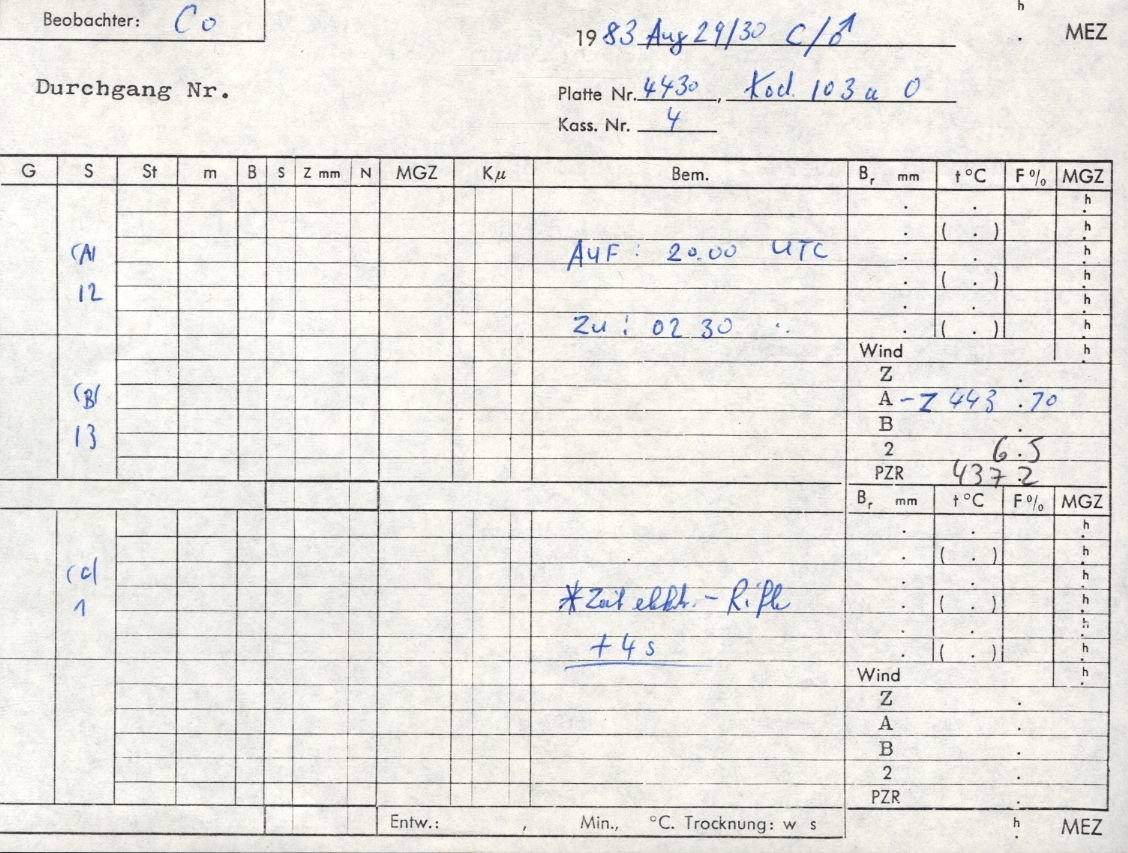 Beobachter: Co
h
1983 Aug 29/30 C/♂ . MEZ
Durchgang Nr.
Platte Nr. 4430, Kod. 103 a O
Kass. Nr. 4
G S St m B S Z mm N MGZ Kμ Bem. Br mm t °C F % MGZ
. . h
. ( . ) h
(A) Auf: 20.00 UTC . . h
12 . ( . ) h
. . h
Zu: 02 30 .. . ( . ) h
Wind h
Z .
(B) A -Z 443 . 70
13 B .
2 6.5
PZR 437.2
Br mm t °C F % MGZ
. . h
. ( . ) h
(c) . . h
1 *Zeit elektr. - . ( . ) h
. . h
+ 4 s . ( . ) h
Wind h
Z .
A .
B .
2 .
PZR .
Entw.: , Min., °C. Trocknung: w s h . MEZ